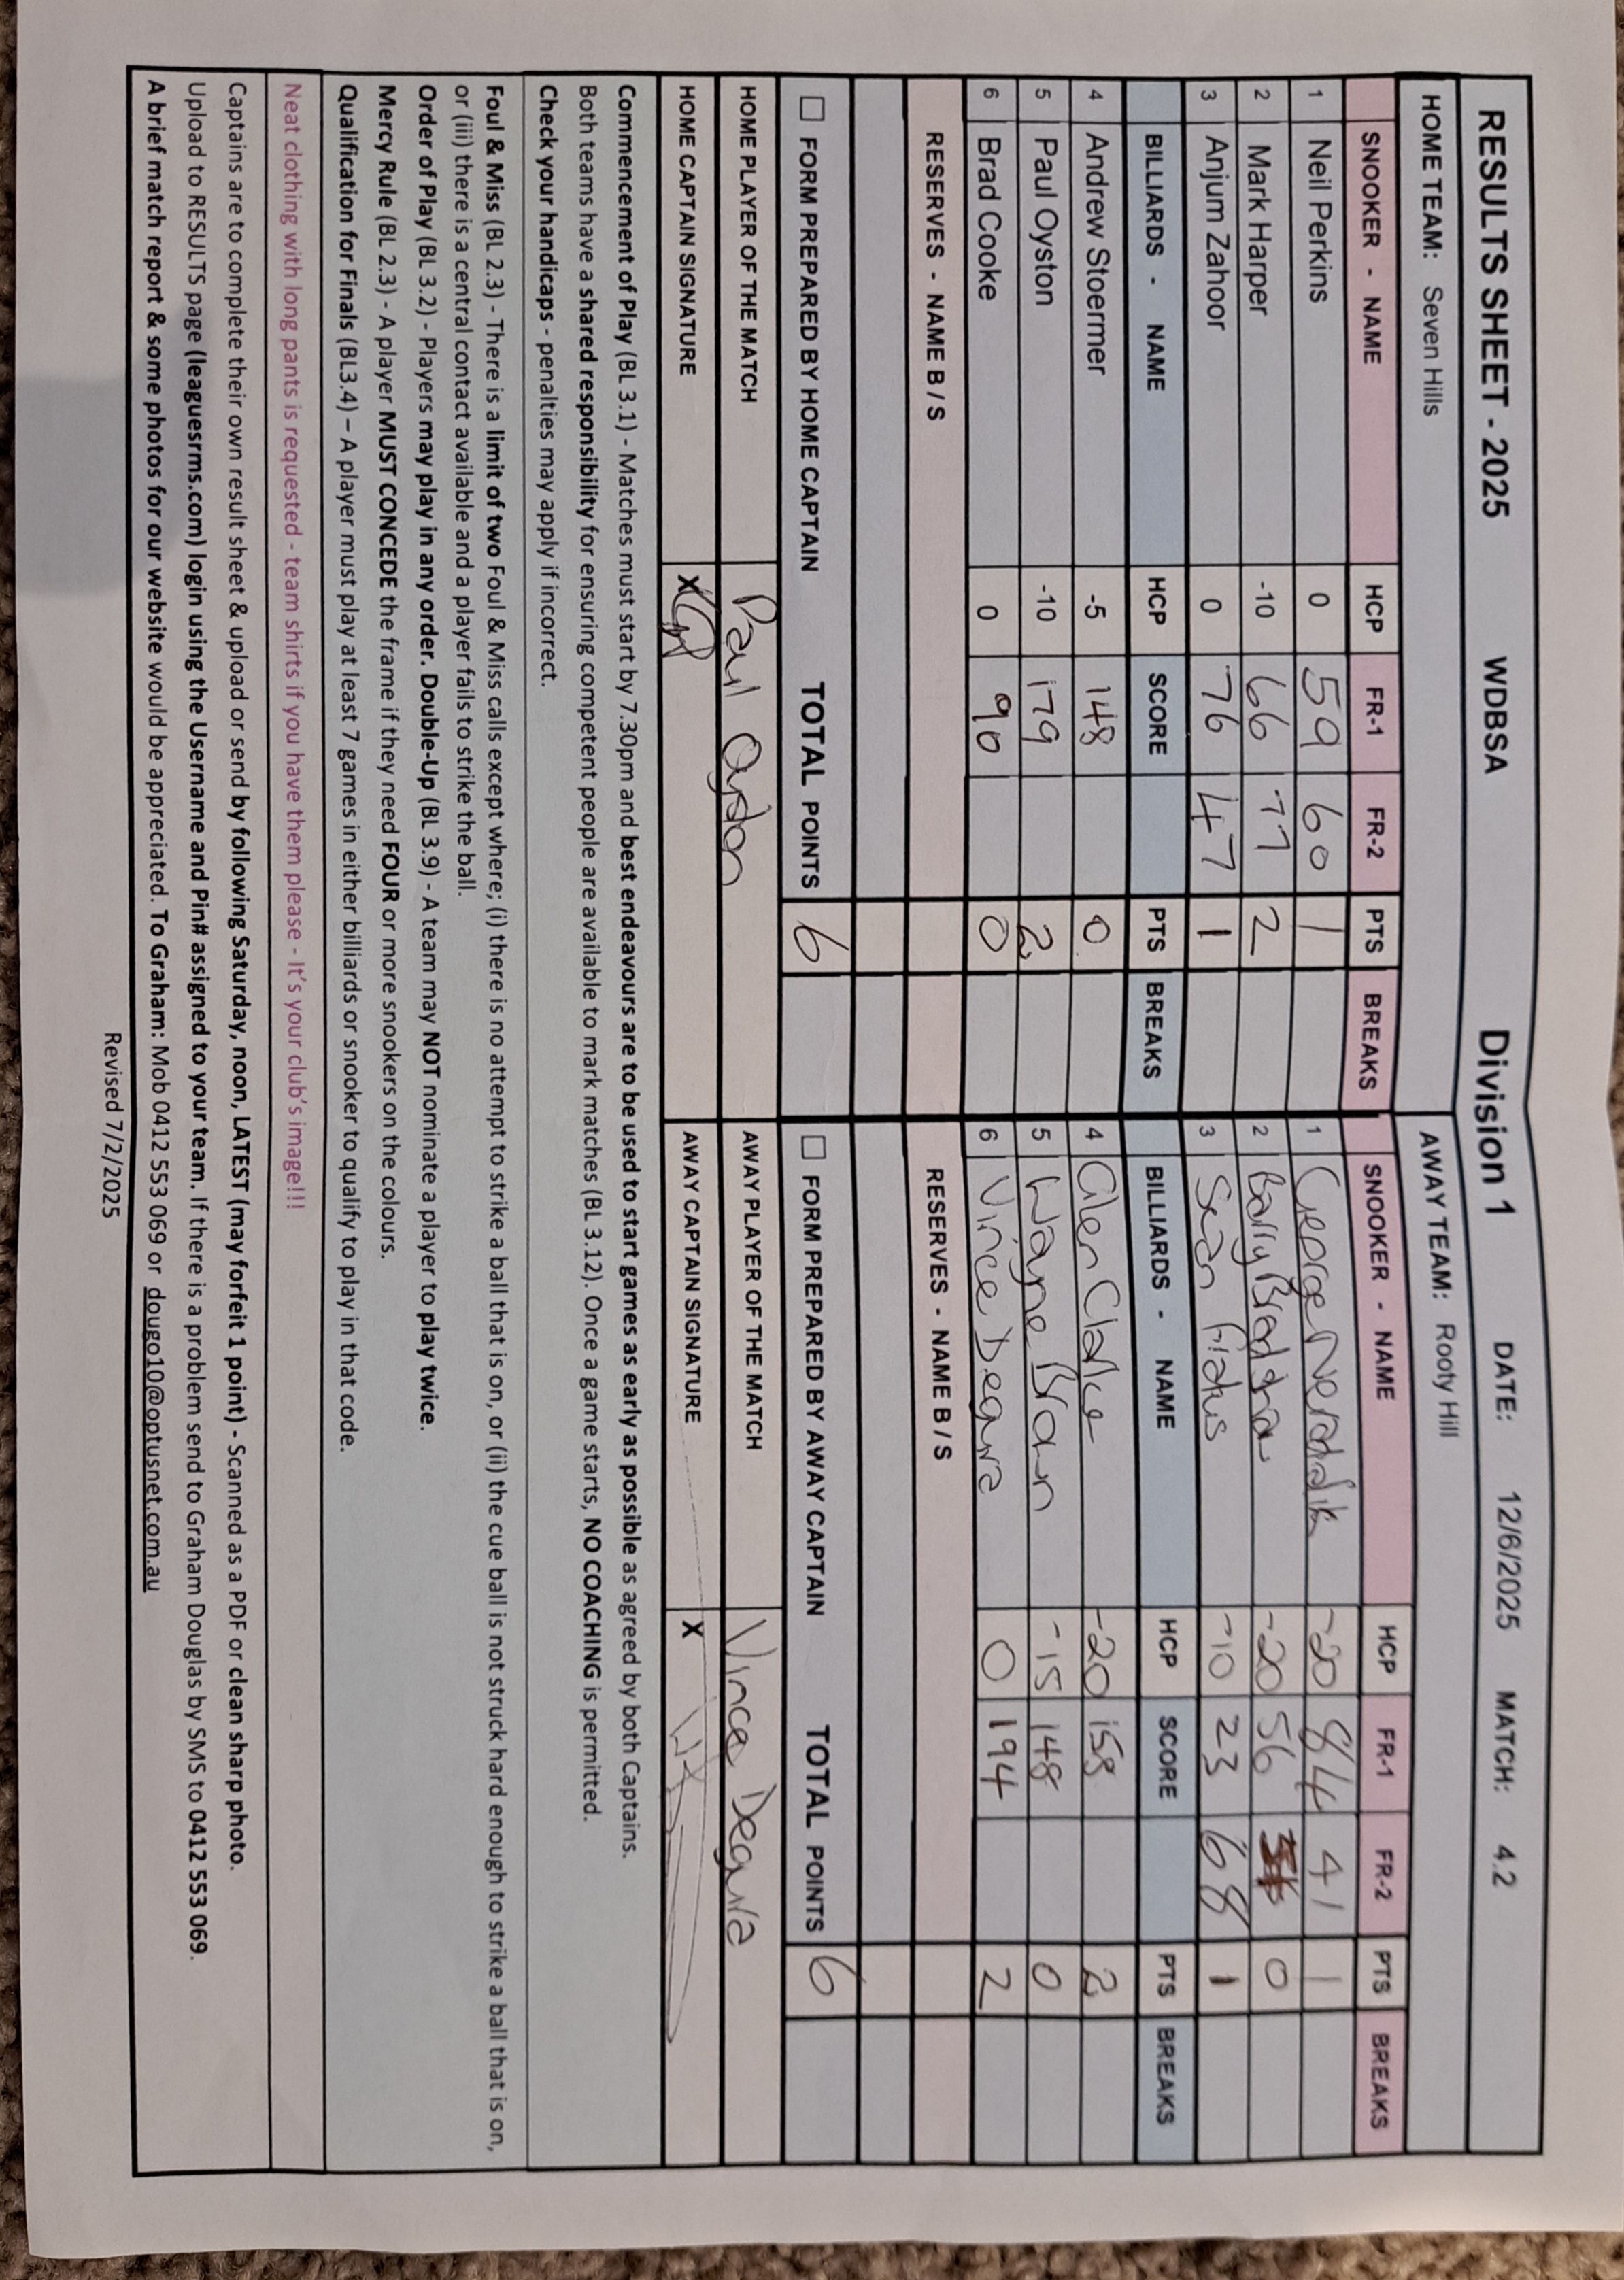 RESULTS SHEET - 2025 WDBSA Division 1 DATE: 12/6/2025 MATCH: 4.2
HOME TEAM: Seven Hills AWAY TEAM: Rooty Hill
SNOOKER - NAME HCP FR-1 FR-2 PTS BREAKS SNOOKER - NAME HCP FR-1 FR-2 PTS BREAKS
1 Neil Perkins 0 59 60 1 1 George -20 84 41 1
2 Mark Harper -10 66 77 2 2 Barry -20 56 0
3 Anjum Zahoor 0 76 47 1 3 Sean -10 23 68 1
BILLIARDS - NAME HCP SCORE PTS BREAKS BILLIARDS - NAME HCP SCORE PTS BREAKS
4 Andrew Stoermer -5 148 0 4 Glen Clarke -20 158 2
5 Paul Oyston -10 179 2 5 Wayne -15 148 0
6 Brad Cooke 0 90 0 6 Vince Degura 0 194 2
RESERVES - NAME B / S RESERVES - NAME B / S
FORM PREPARED BY HOME CAPTAIN TOTAL POINTS 6 FORM PREPARED BY AWAY CAPTAIN TOTAL POINTS 6
HOME PLAYER OF THE MATCH Paul Oyston AWAY PLAYER OF THE MATCH Vince Degura
HOME CAPTAIN SIGNATURE X AWAY CAPTAIN SIGNATURE X
Commencement of Play (BL 3.1) - Matches must start by 7.30pm and best endeavours are to be used to start games as early as possible as agreed by both Captains.
Both teams have a shared responsibility for ensuring competent people are available to mark matches (BL 3.12). Once a game starts, NO COACHING is permitted.
Check your handicaps - penalties may apply if incorrect.
Foul & Miss (BL 2.3) - There is a limit of two Foul & Miss calls except where; (i) there is no attempt to strike a ball that is on, or (ii) the cue ball is not struck hard enough to strike a ball that is on,
or (iii) there is a central contact available and a player fails to strike the ball.
Order of Play (BL 3.2) - Players may play in any order. Double-Up (BL 3.9) - A team may NOT nominate a player to play twice.
Mercy Rule (BL 2.3) - A player MUST CONCEDE the frame if they need FOUR or more snookers on the colours.
Qualification for Finals (BL3.4) – A player must play at least 7 games in either billiards or snooker to qualify to play in that code.
Neat clothing with long pants is requested - team shirts if you have them please - It's your club's image!!!
Captains are to complete their own result sheet & upload or send by following Saturday, noon, LATEST (may forfeit 1 point) - Scanned as a PDF or clean sharp photo.
Upload to RESULTS page (leaguesrms.com) login using the Username and Pin# assigned to your team. If there is a problem send to Graham Douglas by SMS to 0412 553 069.
A brief match report & some photos for our website would be appreciated. To Graham: Mob 0412 553 069 or dougo10@optusnet.com.au
Revised 7/2/2025